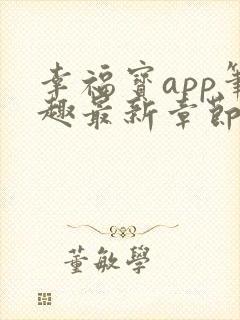 幸福寶app筆
趣最新章節
董敏學